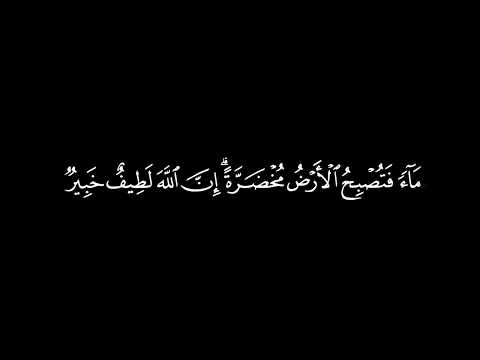 مَآءً فَتُصۡبِحُ ٱلۡأَرۡضُ مُخۡضَرَّةًۗ إِنَّ ٱللَّهَ لَطِيفٌ خَبِيرٞ